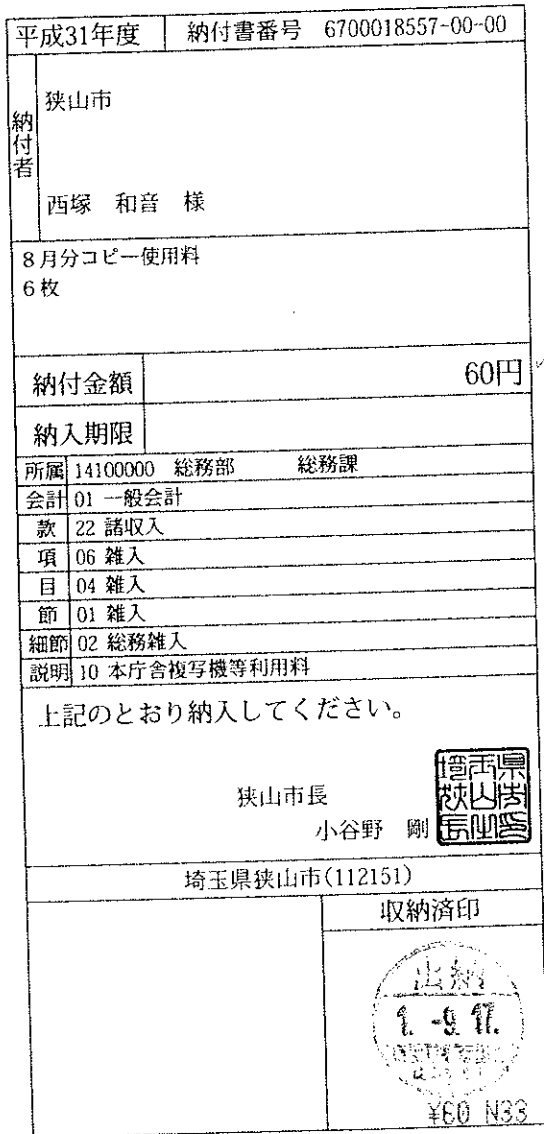 平成31年度 納付書番号 6700018557-00-00
納付者
狭山市
西塚 和音 様
8月分コピー使用料
6枚
納付金額 60円
納入期限
所属 14100000 総務部 総務課
会計 01 一般会計
款 22 諸収入
項 06 雑入
目 04 雑入
節 01 雑入
細節 02 総務雑入
説明 10 本庁舎複写機等利用料
上記のとおり納入してください。
狭山市長
小谷野 剛
埼玉県狭山市(112151)
収納済印
出納
1. -9. 17.
¥60 N33